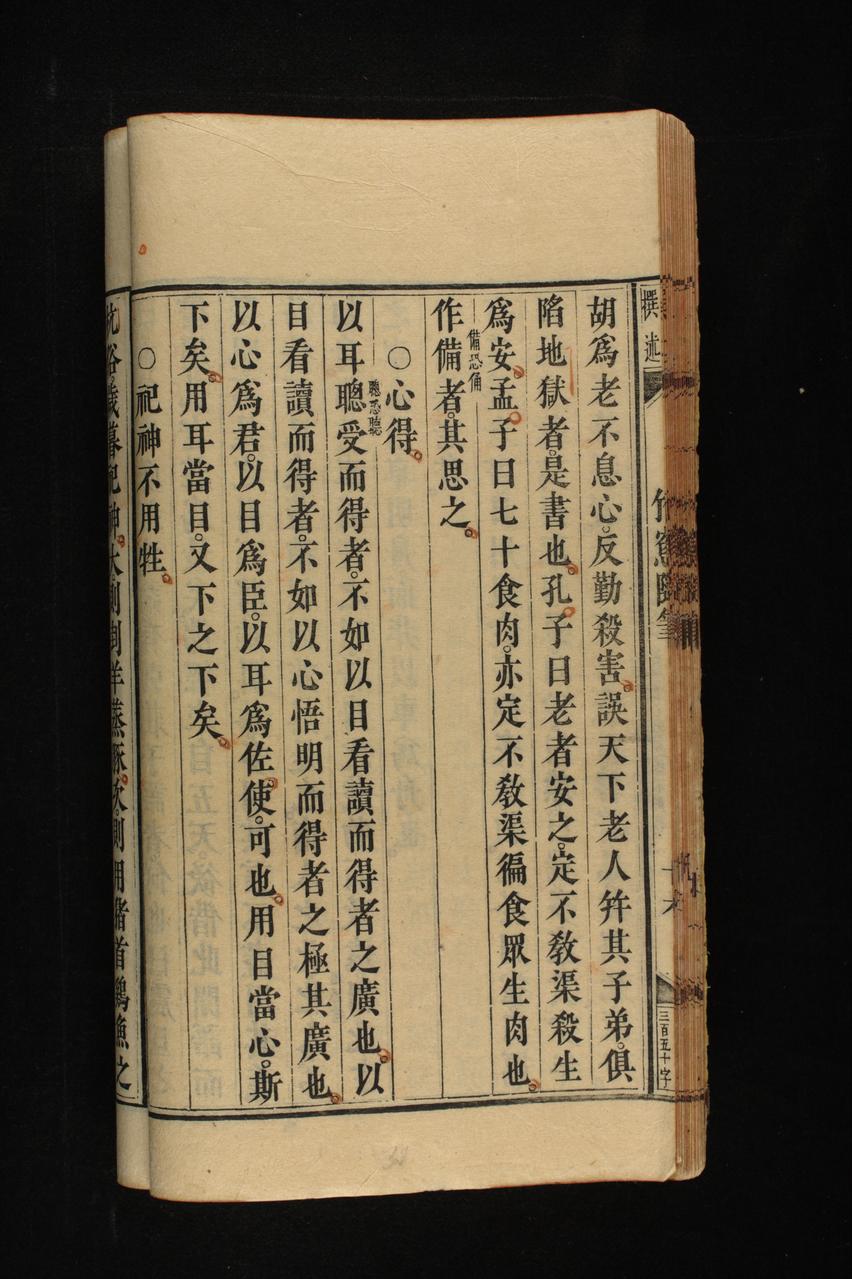 撰述
竹窻隨筆
三百五十字
胡爲老不息心。反勤殺害。誤天下老人幷其子弟。俱
陷地獄者。是書也。孔子曰老者安之。定不敎渠殺生
爲安。孟子曰七十食肉。亦定不敎渠徧食眾生肉也。
備恐俑
作備者。其思之。
○心得。
聰恐聽
以耳聰受而得者。不如以目看讀而得者之廣也。以
目看讀而得者。不如以心悟明而得者之極其廣也。
以心爲君。以目爲臣。以耳爲佐使。可也。用目當心。斯
下矣。用耳當目。又下之下矣。
○祀神不用牲。
杭俗歲暮祀神。大則刲羊蒸豚。次則用猪首鷄魚之